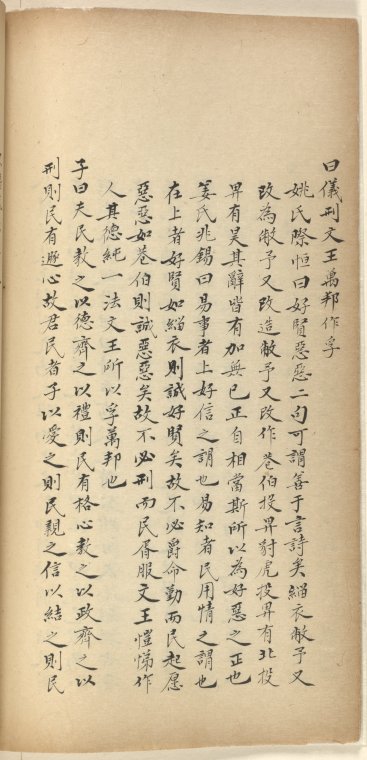 曰儀刑文王萬邦作孚
姚氏際恒曰好賢惡惡二句可謂善于言詩矣緇衣敝予又
改為敝予又改造敝予又改作巷伯投畀豺虎投畀有北投
畀有昊其辭皆有加無已正自相當斯所以為好惡之正也
姜氏兆錫曰易事者上好信之謂也易知者民用情之謂也
在上者好賢如緇衣則誠好賢矣故不必爵命勤而民起愿
惡惡如巷伯則誠惡惡矣故不必刑而民胥服文王愷悌作
人其德純一法文王所以孚萬邦也
子曰夫民教之以德齊之以禮則民有格心教之以政齊之以
刑則民有遯心故君民者子以愛之則民親之信以結之則民